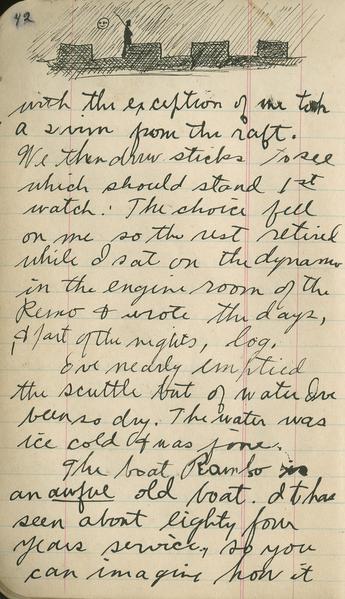 42
with the exception of me took
a swim from the raft.
We then drew sticks to see
which should stand 1st
watch. The choice fell
on me so the rest retired
while I sat on the dynamo
in the engine room of the
& wrote the days,
& part of the nights, log.
I've nearly emptied
the scuttle but of water I've
been so dry. The water was
ice cold & was fine.
The boat Rambo is
an awful old boat. It has
seen about eighty four
years service, so you
can imagine how it